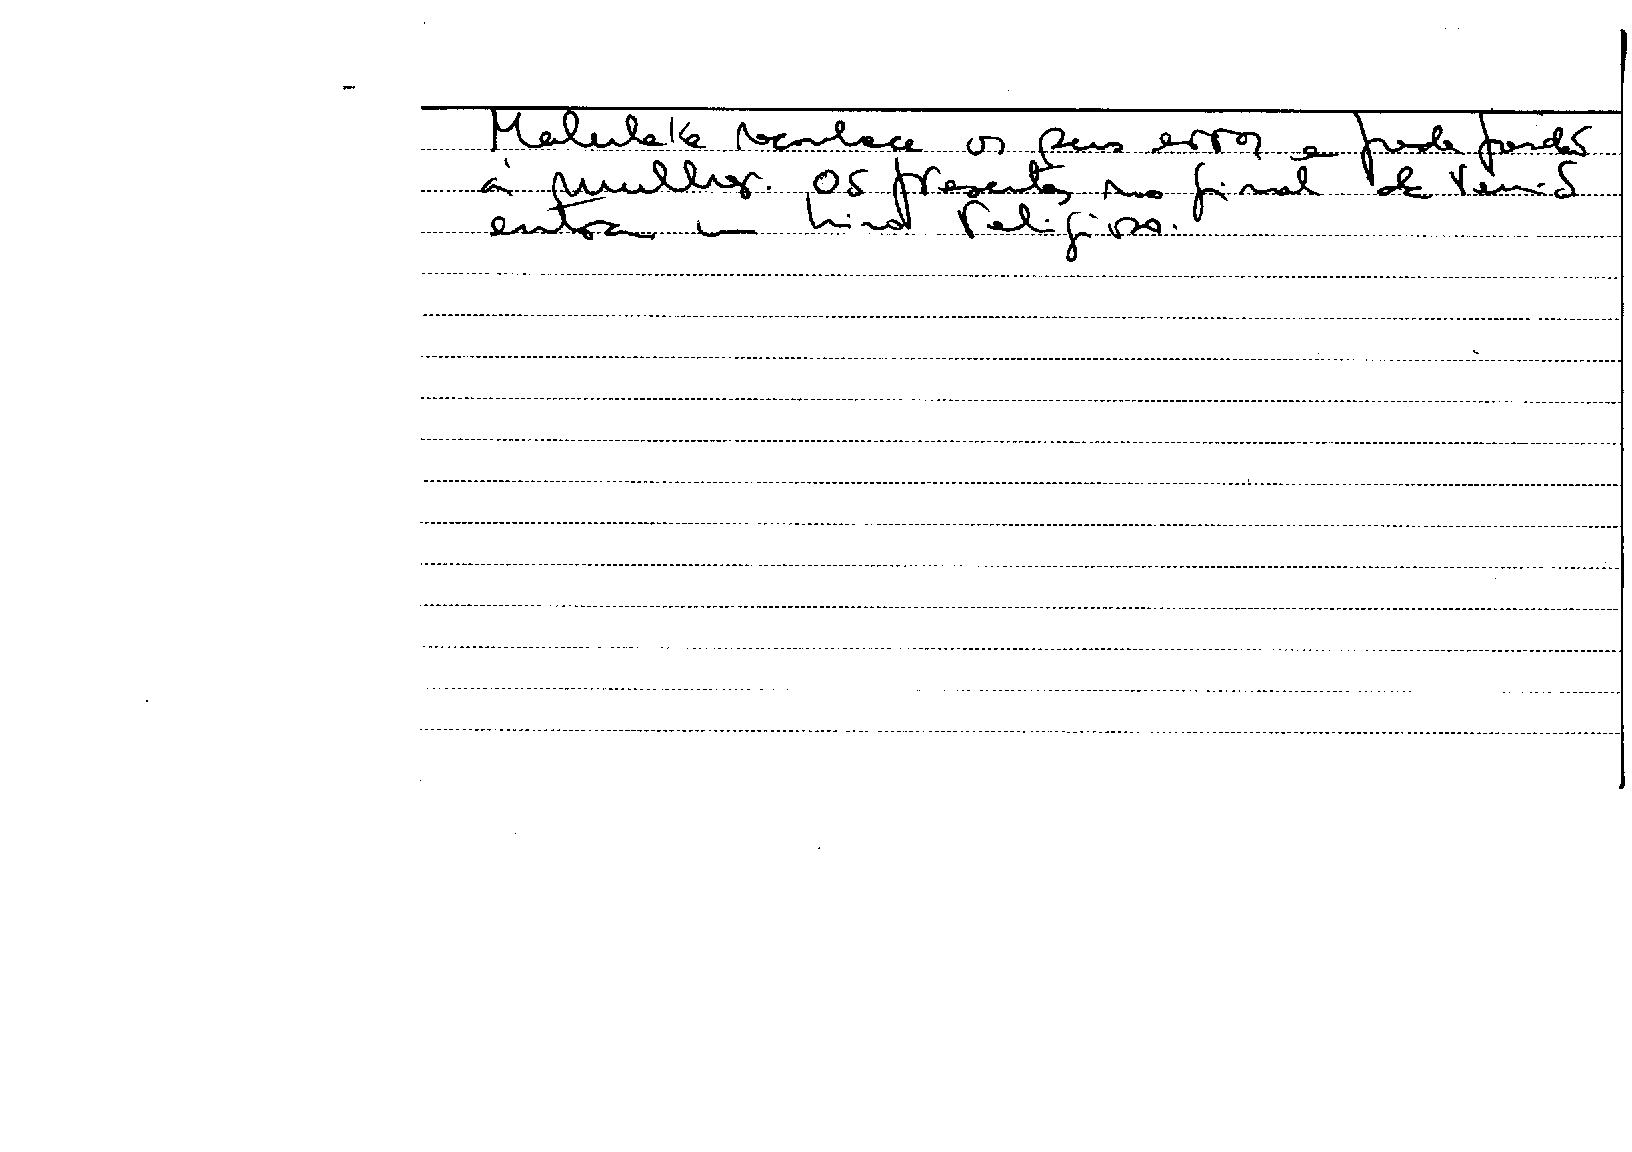 reconhece os seus erros e pede perdão
à mulher. Os presentes no final da reunião
entoam um hino religioso.